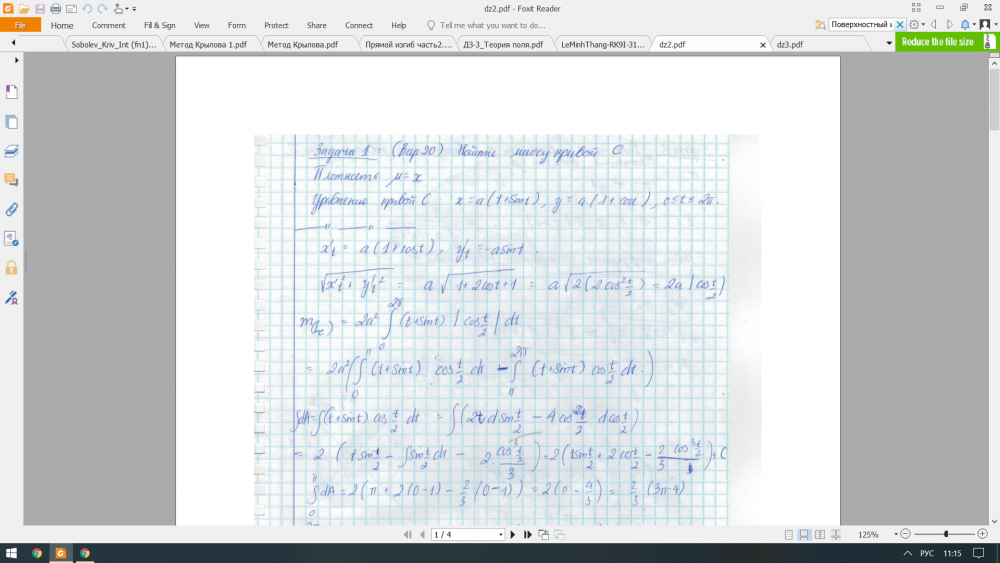 dz2.pdf - Foxit Reader
File Home Comment Fill & Sign View Form Protect Share Connect Help Tell me what you want to do... Поверхностный и
Sobolev_Kriv_Int (fn1)... Метод Крылова 1.pdf Метод Крылова.pdf Прямой изгиб часть2.... ДЗ-3_Теория поля.pdf LeMinhThang-RK9I-31... dz2.pdf dz3.pdf Reduce the file size
Задача 1 (Вар 20) Найти массу кривой C
Плотность μ = x
Уравнение кривой C: x = a(t+sint), y = a(1+cost), 0≤t≤2π.
— " — " —
x't = a(1+cost), y't = -asint.
√(x't² + y't²) = a√(1+2cost+1) = a√(2(2cos²t/2)) = 2a|cos t/2|
m(c) = 2a² ∫₀^2π (t+sint)|cos t/2| dt
= 2a²(∫₀^π (t+sint) cos t/2 dt - ∫π^2π (t+sint) cos t/2 dt.)
∫dA = ∫(t+sint) cos t/2 dt = ∫(2t d sin t/2 - 4cos² t/2 d cos t/2)
= 2 (t sin t/2 - ∫sin t/2 dt - 2·cos³ t/2 / 3) = 2(t sin t/2 + 2cos t/2 - 2/3 cos³ t/2) + C
∫₀^π dA = 2(π + 2(0-1) - 2/3 (0-1)) = 2(π - 4/3) = 2/3 (3π-4)
1 / 4 125%
РУС 11:15